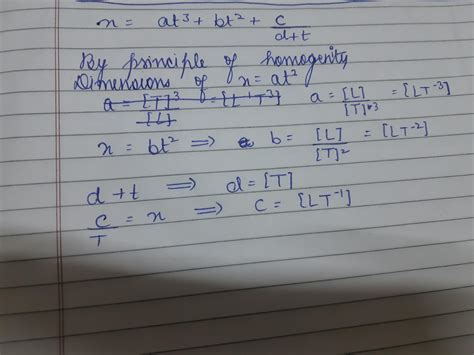 x = at³ + bt² + c/d+t
By principle of homogenity
Dimensions of x = at²
a = [T]³/[L] = [L⁻¹T³] a = [L]/[T]³ = [LT⁻³]
x = bt² ⟹ b = [L]/[T]² = [LT⁻²]
d+t ⟹ d = [T]
c/T = x ⟹ c = [LT⁻¹]